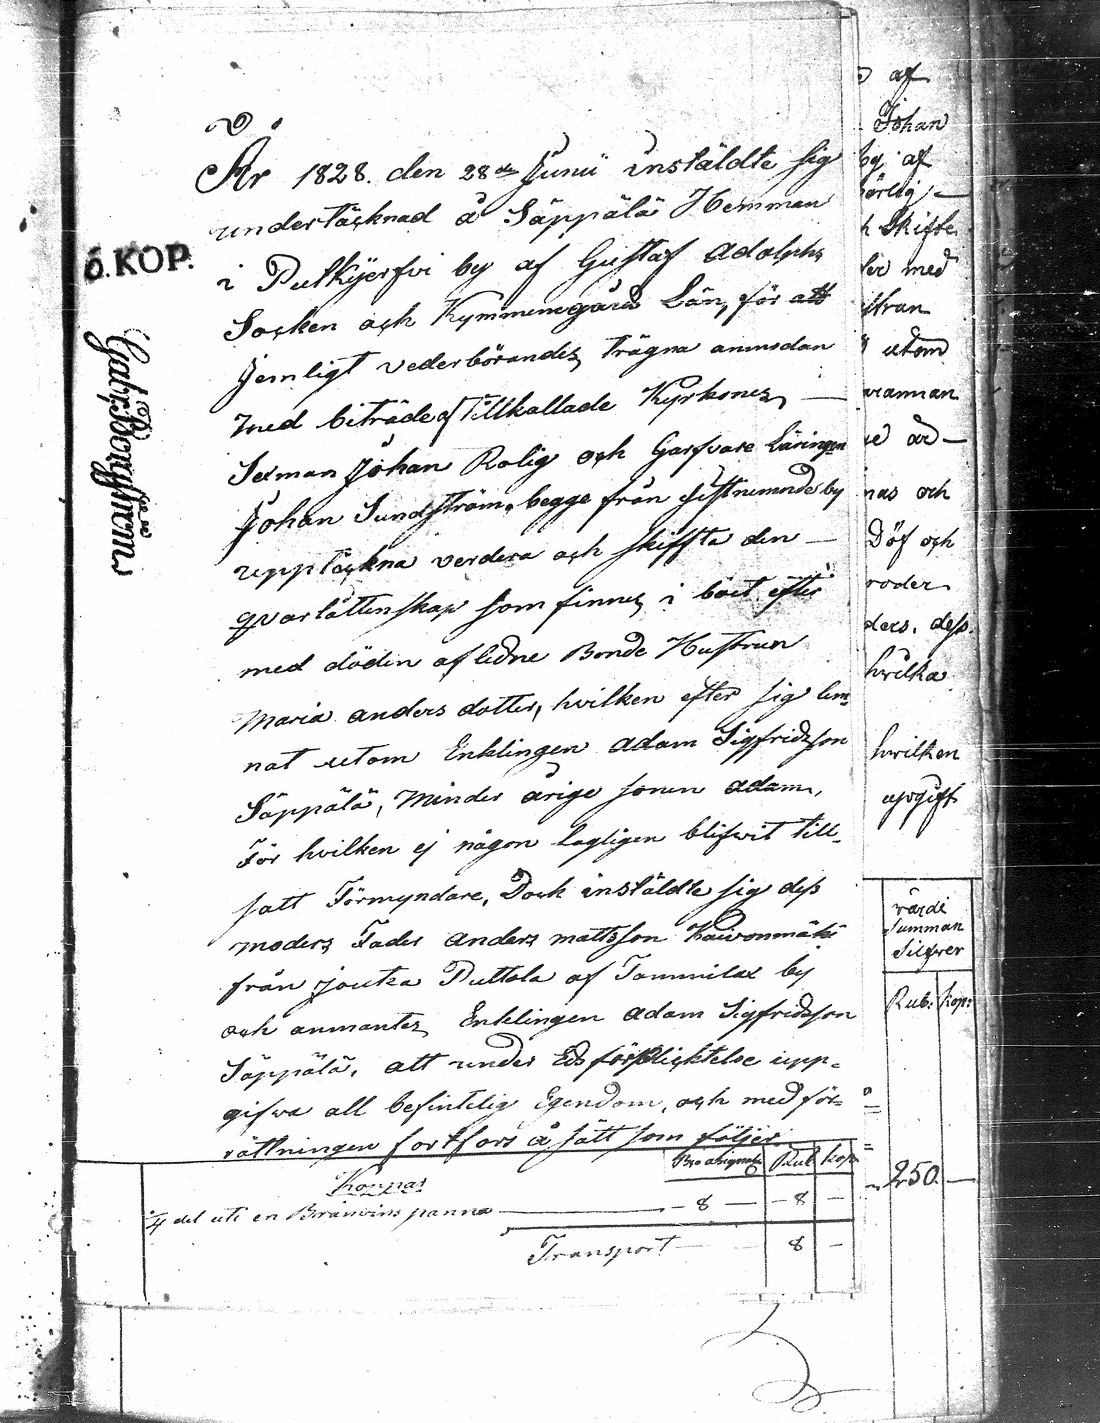 År 1828. den 28de Junii instäldte sig
undertäcknad å Säppälä Hemman
i Pulkjerfvi by af Gustaf Adolphs
Socken och Kymmenegård Län, för att
jemligt vederbörandes trägna anmodan
med biträde af Tillkallade Kyrkones
Sexman Johan Rolig och Garfvare Läringen
Johan Sundström, begge från sistnemnde by
upptäckna verdera och skiffta den
qvarlåttenskap som finnes i boet efter
med döden aflidne Bonde Hustrun
Maria Anders dotter, hvilken efter sig lem-
nat utom Enklingen Adam Sigfridsson
Säppälä, Minder årige sonen Adam,
För hvilken ej någon lagligen blifvit till-
satt Förmyndare, Dock instäldte sig dess
moders Fader Anders Mattsson Kaivonmäki
från Joutsa Puttola af Tammilax by
och anmantes Enklingen Adam Sigfridsson
Säppälä, att under Eds förplicktelse upp-
gifva all befintelig Egendom, och med för-
rättningen fortfors å sätt som följer
Bco Assignats Rub kop
Koppar
1/4 del uti en Bränvins panna — 8 — 8 —
Transport — 8 —
Ö. KOP.
af
Johan
by af
ärlig
Skifte
med
utom
och
Döf och
ders. dess
hvilka
hvilken
upgift
värde
Summan
Silfver
Rub: kop:
250. —